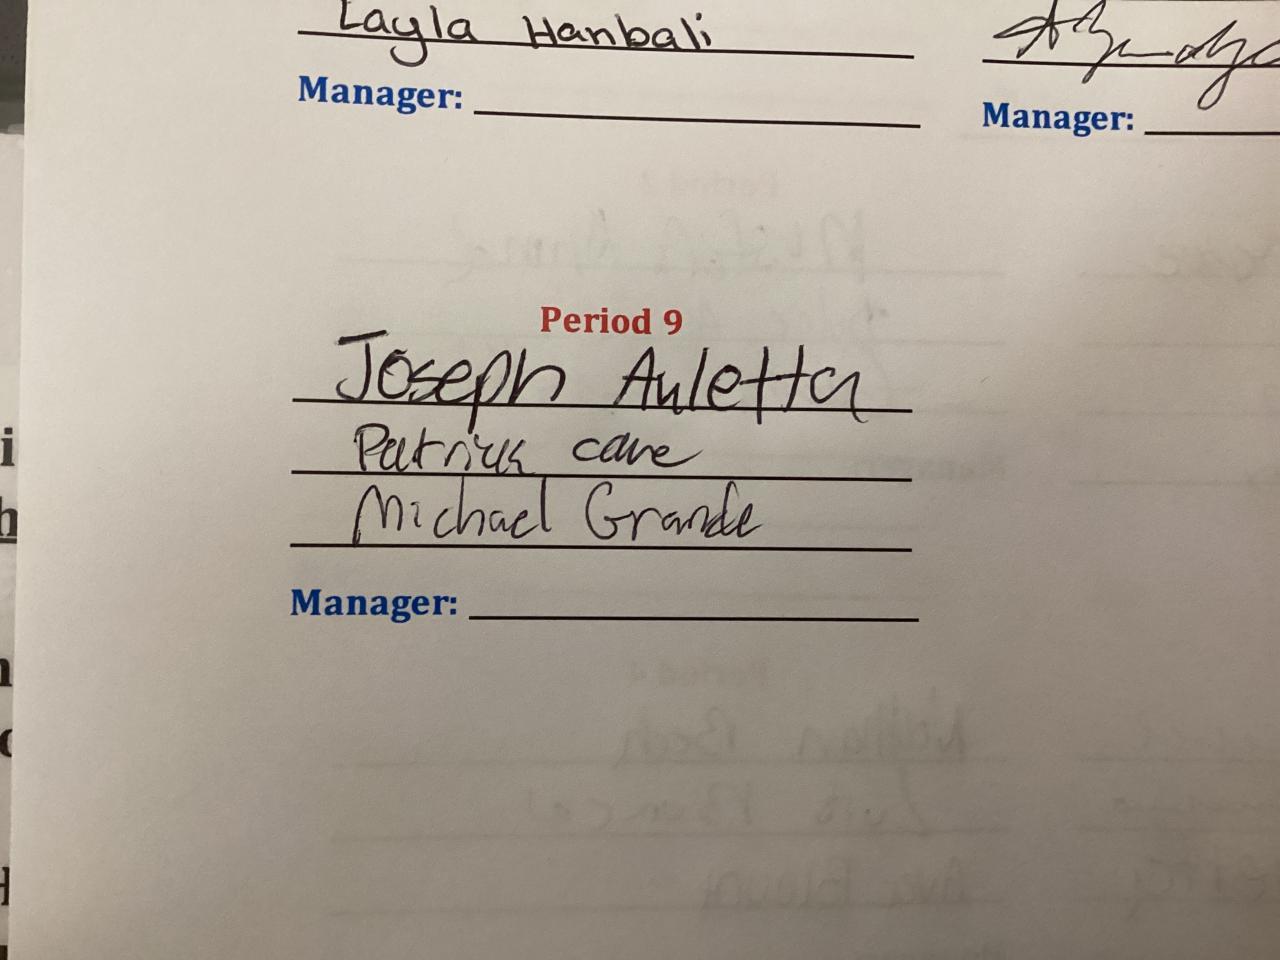 Layla Hanbali
Manager:
Manager:
Period 9
Joseph Auletta
Patrick cave
Michael Grande
Manager: